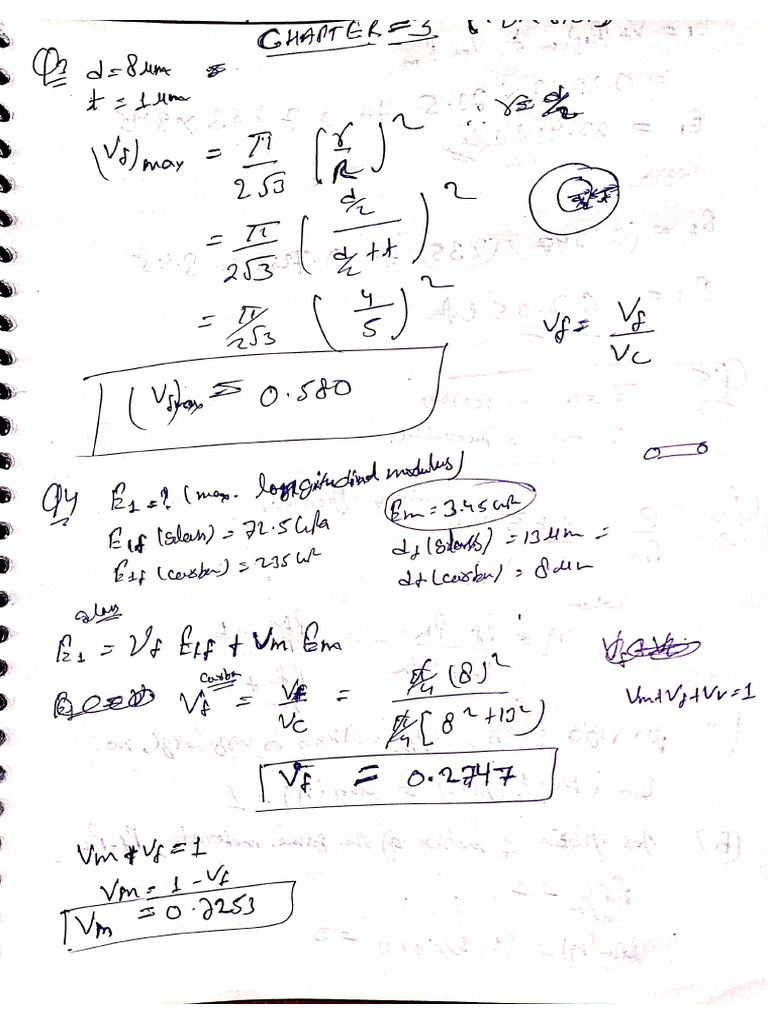 CHAPTER=3
Q3 d=8μm
t=1μm
(Vf)max = π/2√3 (r/R)² ∵ r=d/2
= π/2√3 (d/2 / d/2+t)²
= π/2√3 (4/5)²
Vf = Vf/Vc
(Vf)max = 0.580
Q4 E1=? (max. longitudinal modulus)
E1f (glass) = 72.5 GPa
Em = 3.45 GPa
E1f (carbon) = 235 GPa
df (glass) = 13μm =
df (carbon) = 8μm
glass
E1 = Vf E1f + Vm Em
Vf carbon = Vf/Vc = π/4 (8)² / π/4 [8²+13²)
Vm+Vf+Vv=1
Vf = 0.2747
Vm+Vf=1
Vm = 1-Vf
Vm = 0.7253